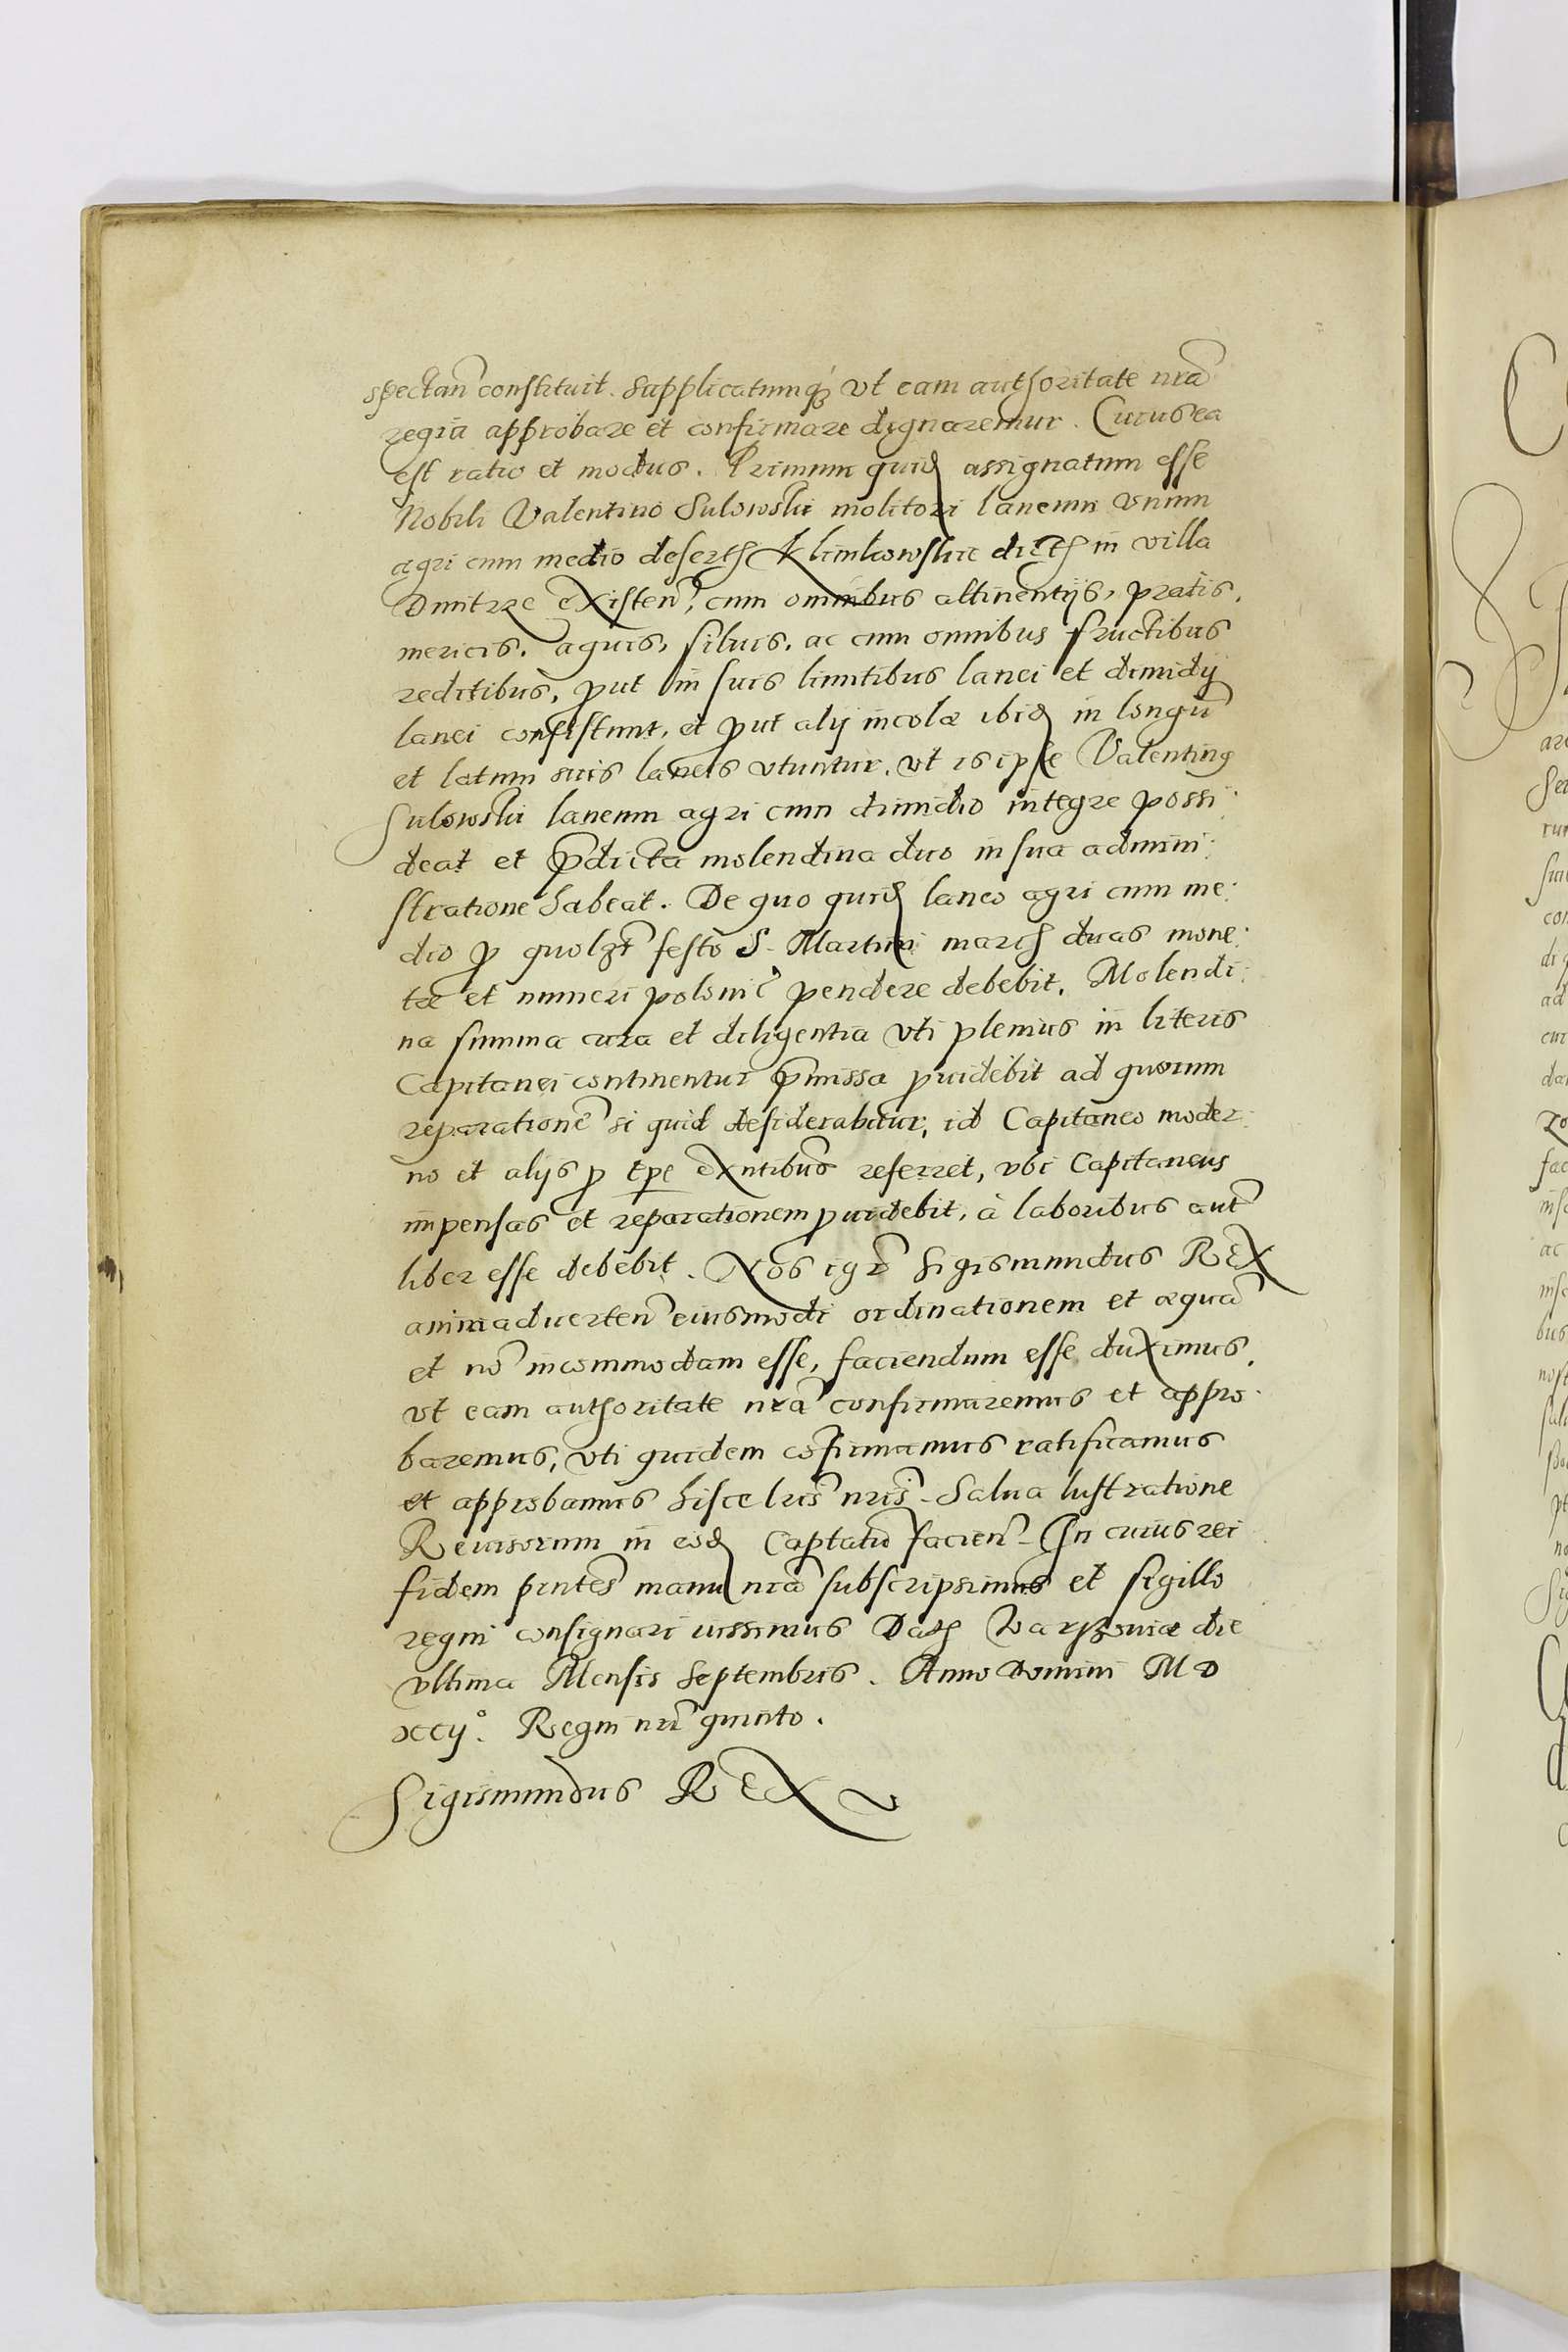 spectan̄ constituit. Supplicatumq́ꝫ vt eam authoritate nrā
regiā approbare et confirmare dignaremur. Cuius ea
est ratio et modus. Primum quidē assignatum esse
Nobili Valentino Sulowski molitori laneum vnum
agri cum medio desertꝭ Klimkowskie dictꝭ in villa
Dmitrze existen̄, cum omnibus attinentijs, pratis,
mericis, aquis, siluis, ac cum omnibus fructibus
reditibus, put in suis limitibus lanei et dimidij
lanei consistunt, et put alij incolæ ibidē in longū
et latum suis laneis vtuntur, vt is ipse Valentinꝰ
Sulowski laneum agri cum dimidio integre possi:
deat et p̄dicta molendina duo in sua admini:
stratione habeat. De quo quidē laneo agri cum me:
dio ꝓ quolꝫt festo S. Martini marcꝭ duas mone:
tæ et numeri polonic̄ pendere debebit. Molendi:
na summa cura et diligentia vti plenius in literis
Capitanei continentur p̄missa ꝓuidebit ad quorum
reparationē si quid desiderabitur, id Capitaneo moder:
no et alijs ꝓ tp̄e exn̄tibus referret, vbi Capitaneus
impensas et reparationem ꝓuidebit, à laboribus aut̄
liber esse debebit. Nos igr̄ Sigismundus REX
animaduerten̄ eiusmodi ordinationem et æquā
et nō incommodam esse, faciendum esse duximus,
vt eam authoritate nrā confirmaremus et appro:
baremus, vti quidem cōfirmamus ratificamus
et approbamus hisce lr̄is nr̄is. Salua lustratione
Reuisorum in eodē Captatu facien̄. In cuius rei
fidem pn̄tes manu nrā subscripsimus et sigillo
regni consignari iussimus Datꝭ Varszouiæ die
vltima Mensis Septembris. Anno Domini M D
xcij°. Regni nrī quinto.
Sigismundus REX